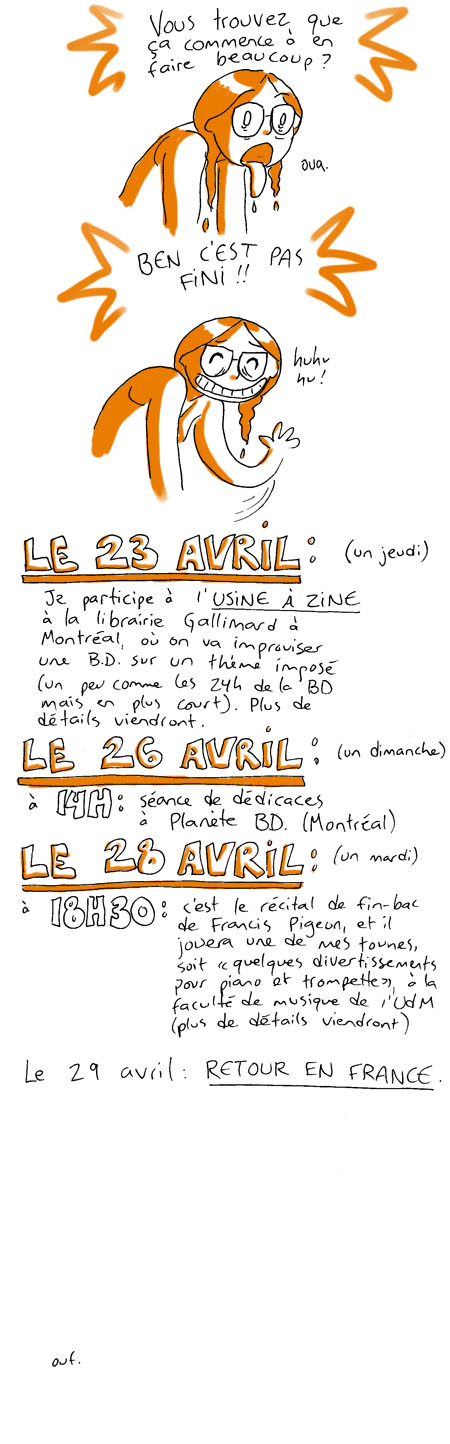 Vous trouvez que
ça commence à en
faire beaucoup?
oua.
BEN C'EST PAS
FiNi!!
huhu
hu!
LE 23 AVRiL: (un jeudi)
Je participe à l'USiNE À ZiNE
à la librairie Gallimard à
Montréal, où on va improviser
une B.D. sur un thème imposé
(un peu comme les 24h de la BD
mais en plus court). Plus de
détails viendront.
LE 26 AVRiL: (un dimanche)
à 14H: séance de dédicaces
à Planète BD. (Montréal)
LE 28 AVRiL: (un mardi)
à 18H30: c'est le récital de fin-bac
de Francis Pigeon, et il
jouera une de mes tounes,
soit «quelques divertissements
pour piano et trompette», à la
faculté de musique de l'UdM
(plus de détails viendront)
Le 29 avril: RETOUR EN FRANCE.
ouf.